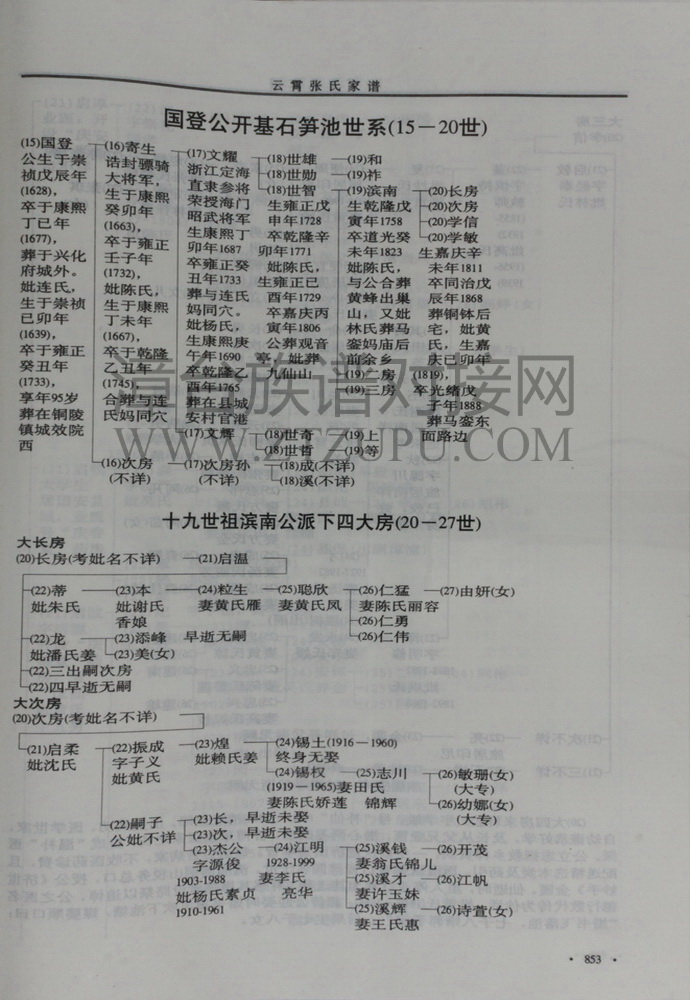 云霄张氏家谱
国登公开基石笋池世系(15－20世)
(15)国登
公生于崇
祯戊辰年
(1628),
卒于康熙
丁已年
(1677),
葬于兴化
府城外。
妣连氏,
生于崇祯
已卯年
(1639),
卒于雍正
癸丑年
(1733),
享年95岁
葬在铜陵
镇城效院
西
(16)寄生
诰封骠骑
大将军,
生于康熙
癸卯年
(1663),
卒于雍正
壬子年
(1732),
妣陈氏,
生于康熙
丁未年
(1667),
卒于乾隆
乙丑年
(1745),
合葬与连
氏妈同穴
(16)次房
(不详)
(17)文耀
浙江定海
直隶参将
荣授海门
昭武将军
生康熙丁
卯年1687
卒雍正癸
丑年1733
葬与连氏
妈同穴。
妣杨氏,
生康熙庚
午年1690
卒乾隆乙
酉年1765
葬在县城
安村官港
(17)文辉
(17)次房孙
(不详)
(18)世雄
(18)世勋
(18)世智
生雍正戊
申年1728
卒乾隆辛
卯年1771
妣陈氏,
生雍正已
酉年1729
卒嘉庆丙
寅年1806
公葬观音
亭,妣葬
九仙山
(18)世奇
(18)世哲
(18)成(不详)
(18)溪(不详)
(19)和
(19)祚
(19)滨南
生乾隆戊
寅年1758
卒道光癸
未年1823
妣陈氏,
与公合葬
黄蜂出巢
山,又妣
林氏葬马
銮妈庙后
前余乡
(19)二房
(19)三房
(19)上
(19)等
(20)长房
(20)次房
(20)学信
(20)学敏
生嘉庆辛
未年1811
卒同治戊
辰年1868
葬铜钵后
宅,妣黄
氏,生嘉
庆已卯年
(1819),
卒光绪戊
子年1888
葬马銮东
面路边
十九世祖滨南公派下四大房(20－27世)
大长房
(20)长房(考妣名不详) (21)启温
(22)蒂 (23)本 (24)粒生 (25)聪欣 (26)仁猛 (27)由妍(女)
妣朱氏 妣谢氏 妻黄氏雁 妻黄氏凤 妻陈氏丽容
香娘 (26)仁勇
(22)龙 (23)添峰 早逝无嗣 (26)仁伟
妣潘氏姜 (23)美(女)
(22)三出嗣次房
(22)四早逝无嗣
大次房
(20)次房(考妣名不详)
(21)启柔 (22)振成 (23)煌 (24)锡土(1916－1960)
妣沈氏 字子义 妣赖氏姜 终身无娶
妣黄氏 (24)锡权 (25)志川 (26)敏珊(女)
(1919－1965)妻田氏 (大专)
妻陈氏娇莲 锦辉 (26)幼娜(女)
(大专)
(22)嗣子 (23)长,早逝未娶
公妣不详 (23)次,早逝未娶
(23)杰公 (24)江明 (25)溪钱 (26)开茂
字源俊 1928-1999 妻翁氏锦儿
1903-1988 妻李氏 (25)溪才 (26)江帆
妣杨氏素贞 亮华 妻许玉妹
1910-1961 (25)溪辉 (26)诗萱(女)
妻王氏惠
·853·
WWW.ZTZUPU.COM